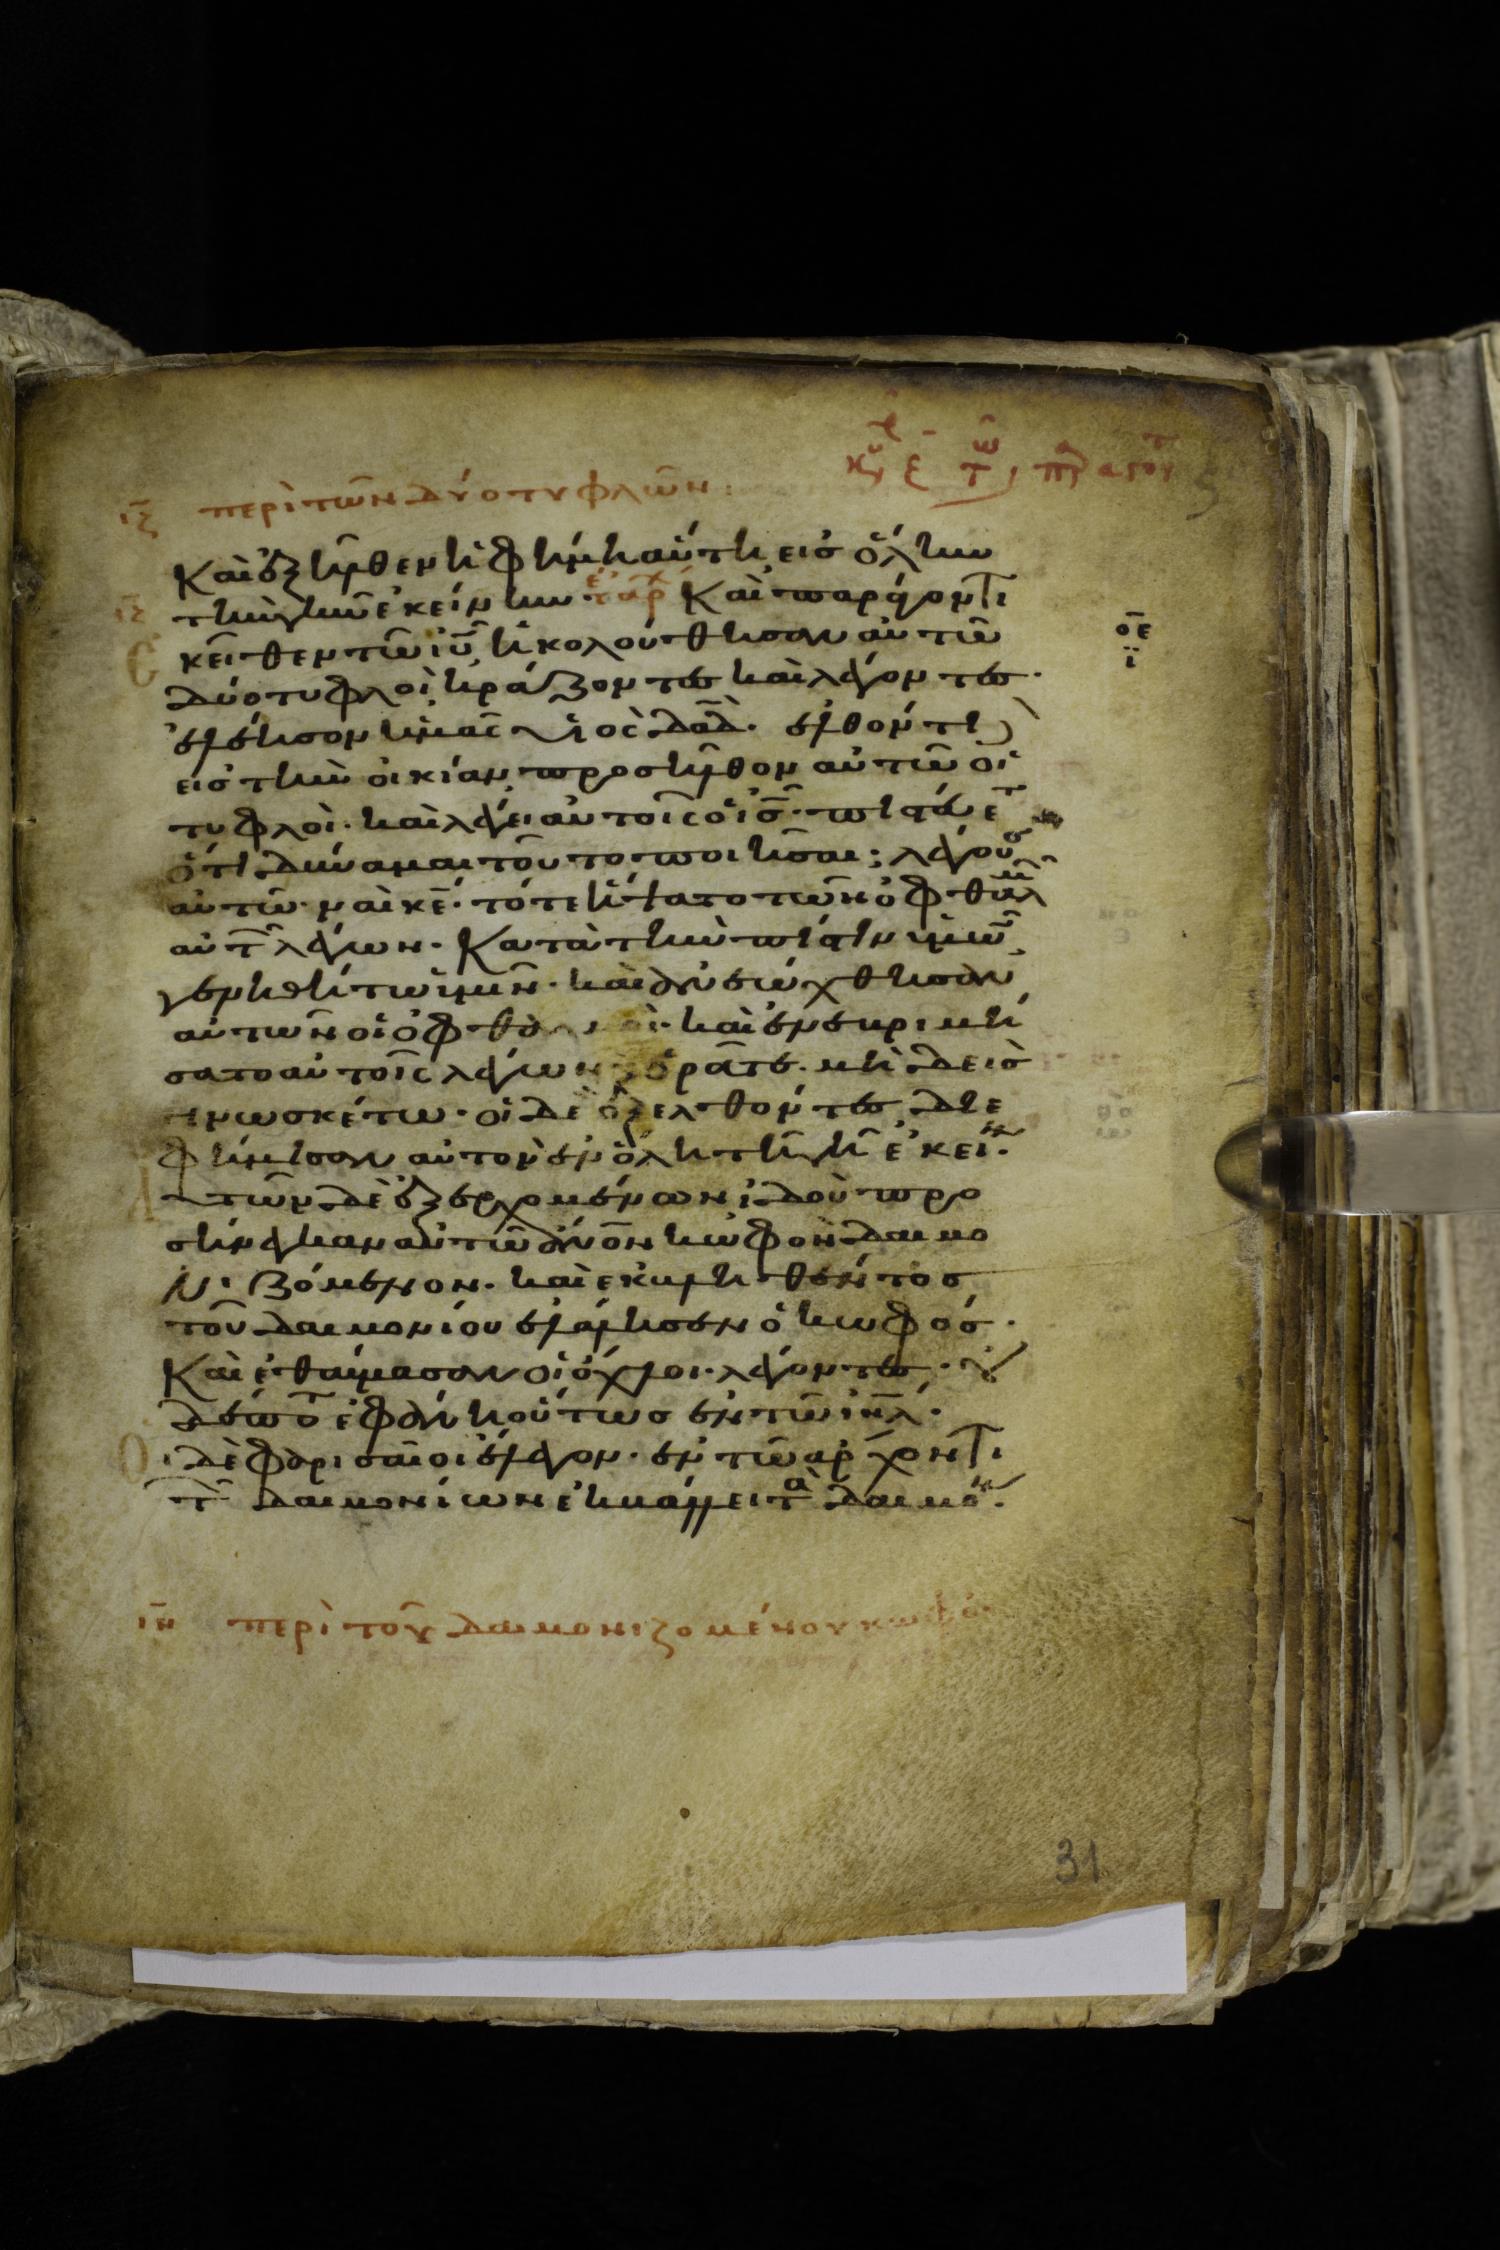 ιζ περὶ τῶν δύο τυφλῶν:
Καὶ ἐξῆλθεν ἡ φήμη αὕτη εἰς ὅλην
τὴν γῆν ἐκείνην. Καὶ παράγοντι
ἐκεῖθεν τῶ ιῦ ἠκολούθησαν αὐτῶ
δύο τυφλοὶ κράζοντες καὶ λέγοντες.
ἐλέησον ἡμᾶς υἱὸς δαδ. ἐλθόντι
εἰς τὴν οἰκίαν προσῆλθον αὐτῶ οἱ
τυφλοὶ. καὶ λέγει αὐτοῖς ὁ ις. πιστεύετ
ὅτι δύναμαι τοῦτο ποιῆσαι; λέγουσ
αὐτῶ. ναὶ κε. τότε ἥψατο τῶν ὀφθαλμ
αὐτ λέγων. Κατὰ τὴν πίστιν ὑμῶν
γενηθήτω ὑμῖν. καὶ ἀνεώχθησαν
αὐτῶν οἱ ὀφθαλμοὶ. καὶ ἐνεβριμή
σατο αὐτοῖς λέγων ὁρᾶτε. μὴ δεὶς
γινωσκέτω. οἱ δὲ ἐξελθόντες διε
φήμισαν αὐτὸν ἐν ὅλη τῆ γῆ ἐκείν.
Αὐτῶν δὲ ἐξερχομένων ἰδοὺ προ
σήνεγκαν αὐτῶ ανον κωφὸν δαιμο
νιζόμενον. καὶ ἐκβληθέντος
τοῦ δαιμονίου ἐλάλησεν ὁ κωφός.
Καὶ ἐθαύμασαν οἱ ὄχλοι λέγοντες. οὐ
δέποτ ἐφάνη οὕτως ἐν τῶ ιηλ.
Οἱ δὲ φαρισαῖοι ἔλεγον. ἐν τῶ ἄρχοντι
τ δαιμονίων ἐκβάλλει τὰ δαιμόν.
οε
ι
ιη περὶ τοῦ δαιμονιζομένου κωφοῦ
31